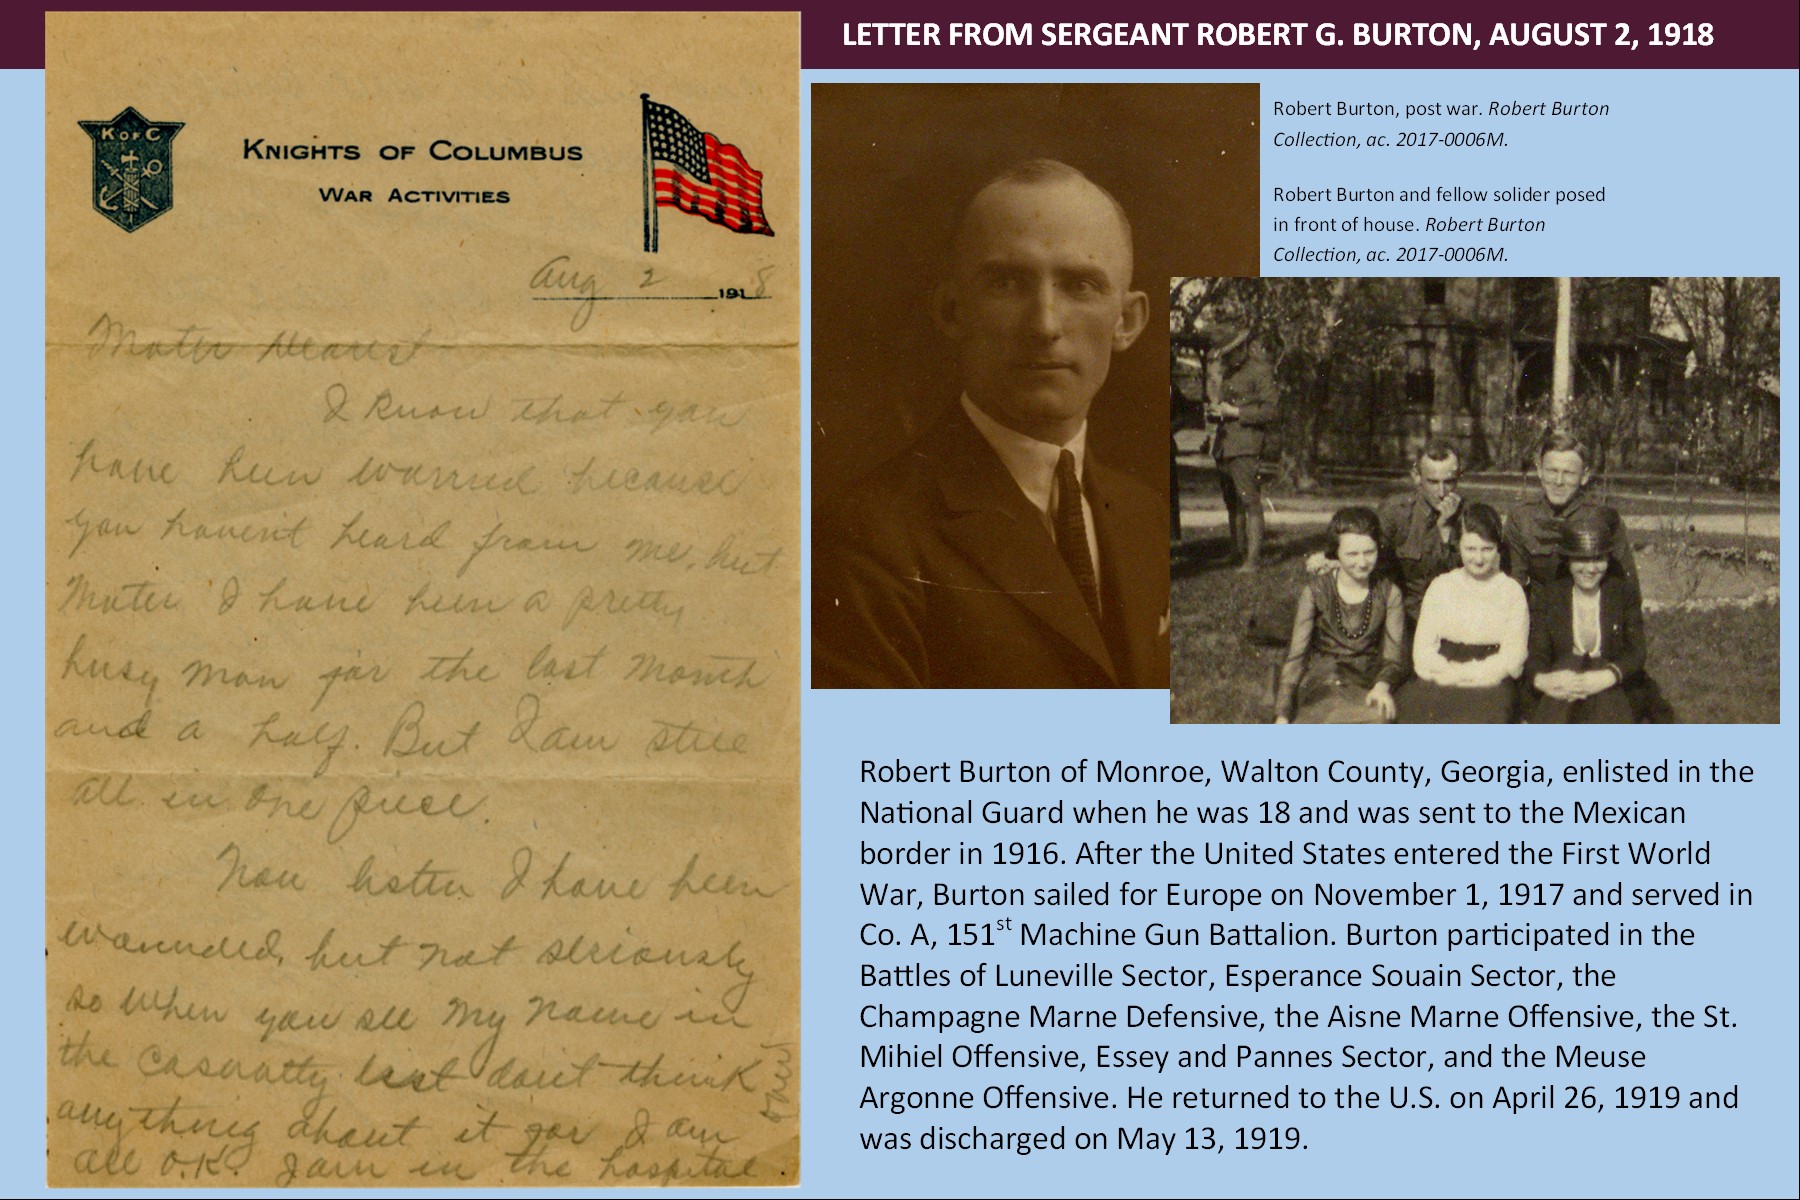 LETTER FROM SERGEANT ROBERT G. BURTON, AUGUST 2, 1918
K OF C
KNIGHTS OF COLUMBUS
WAR ACTIVITIES
Aug 2 1918
Mater Dearest
I know that you
have been worried because
you havent heard from me, but
Mater I have been a pretty
busy man for the last month
and a half. But I am still
all in one piece.
Now listen I have been
wounded, but not seriously
so when you see my name in
the casualty list don't think
anything about it for I am
all O.K. I am in the hospital
Robert Burton, post war. Robert Burton
Collection, ac. 2017-0006M.
Robert Burton and fellow solider posed
in front of house. Robert Burton
Collection, ac. 2017-0006M.
Robert Burton of Monroe, Walton County, Georgia, enlisted in the
National Guard when he was 18 and was sent to the Mexican
border in 1916. After the United States entered the First World
War, Burton sailed for Europe on November 1, 1917 and served in
Co. A, 151st Machine Gun Battalion. Burton participated in the
Battles of Luneville Sector, Esperance Souain Sector, the
Champagne Marne Defensive, the Aisne Marne Offensive, the St.
Mihiel Offensive, Essey and Pannes Sector, and the Meuse
Argonne Offensive. He returned to the U.S. on April 26, 1919 and
was discharged on May 13, 1919.